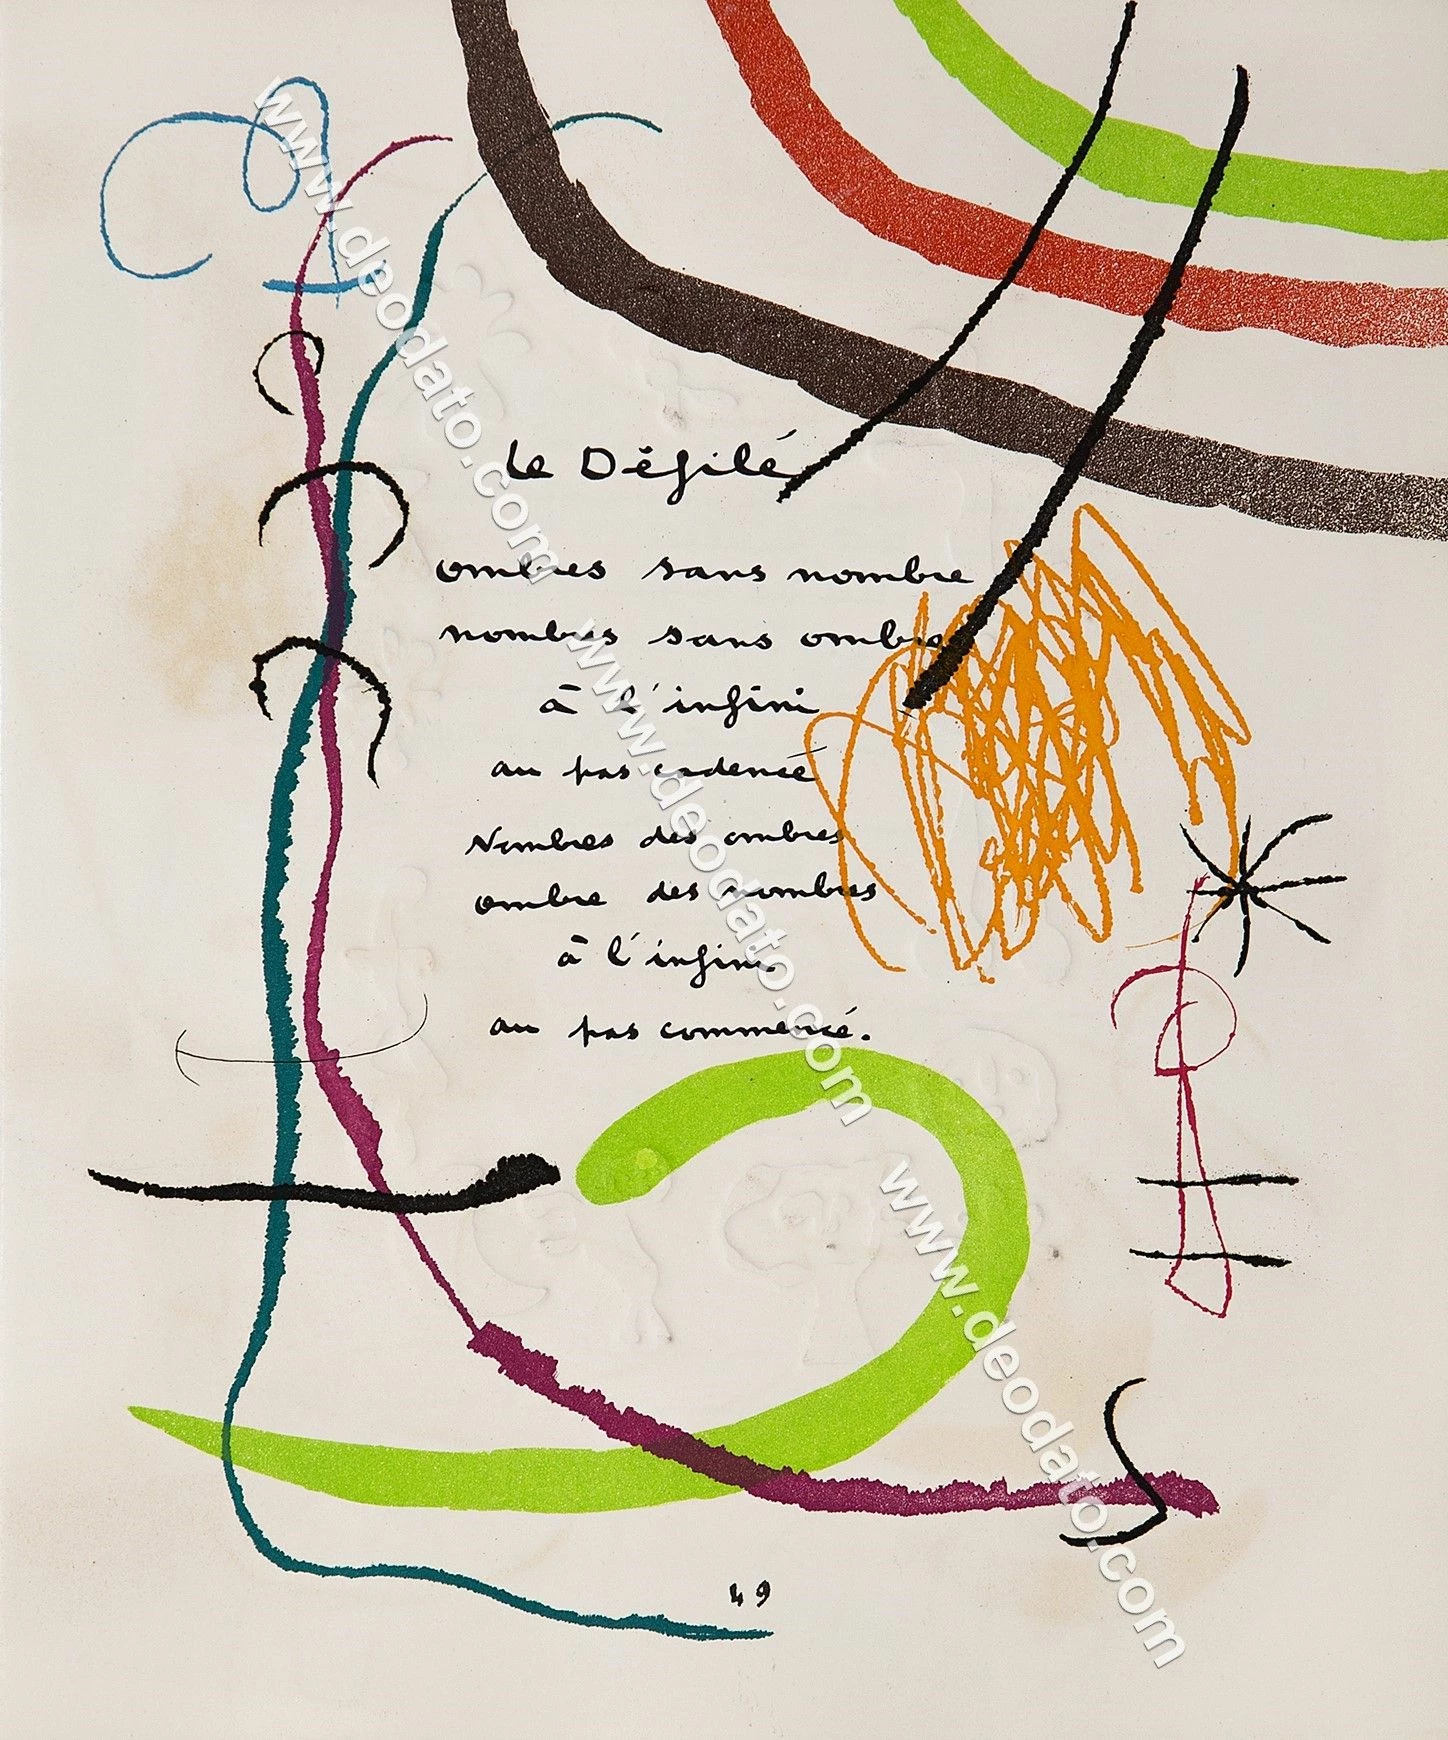 le Défilé
ombres sans nombre
nombres sans ombre
à l'infini
au pas cadencé
Nombres des ombres
ombre des nombres
à l'infini
au pas commencé.
49
www.deodato.com
www.deodato.com
www.deodato.com